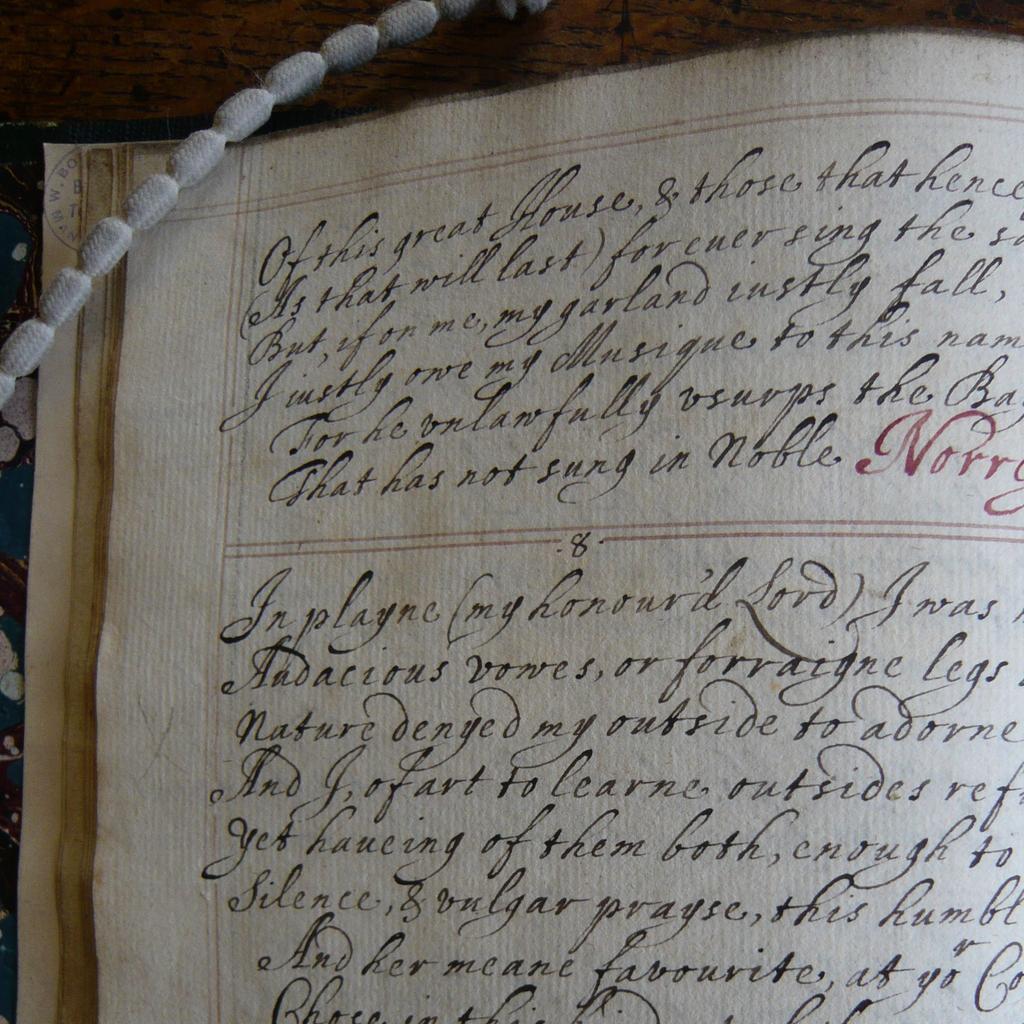 Of this great House, & those that hence
(As that will last) for euer sing the
But, if on me, my garland iustly fall,
I iustly owe my Musique to this nam
For he vnlawfully vsurps the Ba
That has not sung in Noble Norr
·8·
In playne (my honour'd Lord) I was
Audacious vowes, or forraigne legs
Nature denyed my outside to adorne
And I, of art to learne outsides ref
Yet haueing of them both, enough to
Silence, & vulgar prayse, this humbl
And her meane favourite, at yor Co
Chose in this